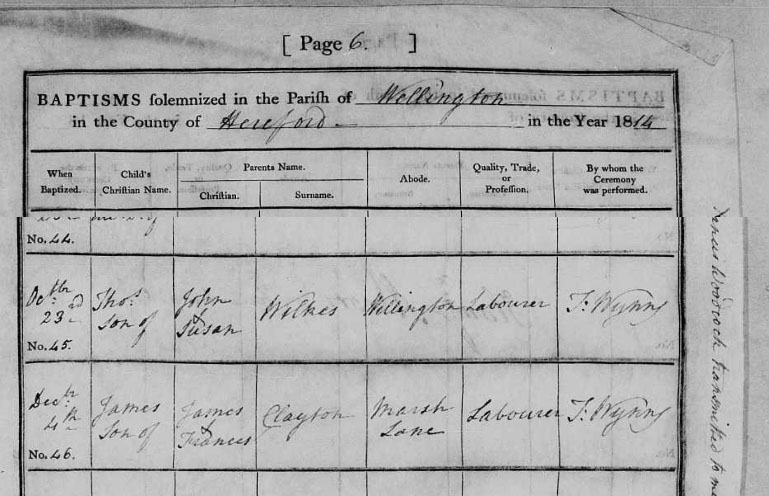 [ Page 6. ]
BAPTISMS ſolemnized in the Pariſh of Wellington
in the County of Hereford in the Year 1814
When
Baptized.
Child's
Chriſtian Name.
Parents Name.
Chriſtian.
Surname.
Abode.
Quality, Trade,
or
Profeſſion.
By whom the
Ceremony
was performed.
No. 44.
Octbr
23rd
No. 45.
Thos
Son of
John
&
Susan
Wilkes
Wellington
Labourer
T. Wynns
Decbr
4th
No. 46.
James
Son of
James
&
Frances
Clayton
Marsh
Lane
Labourer
T. Wynns
Woodcock transmitted to